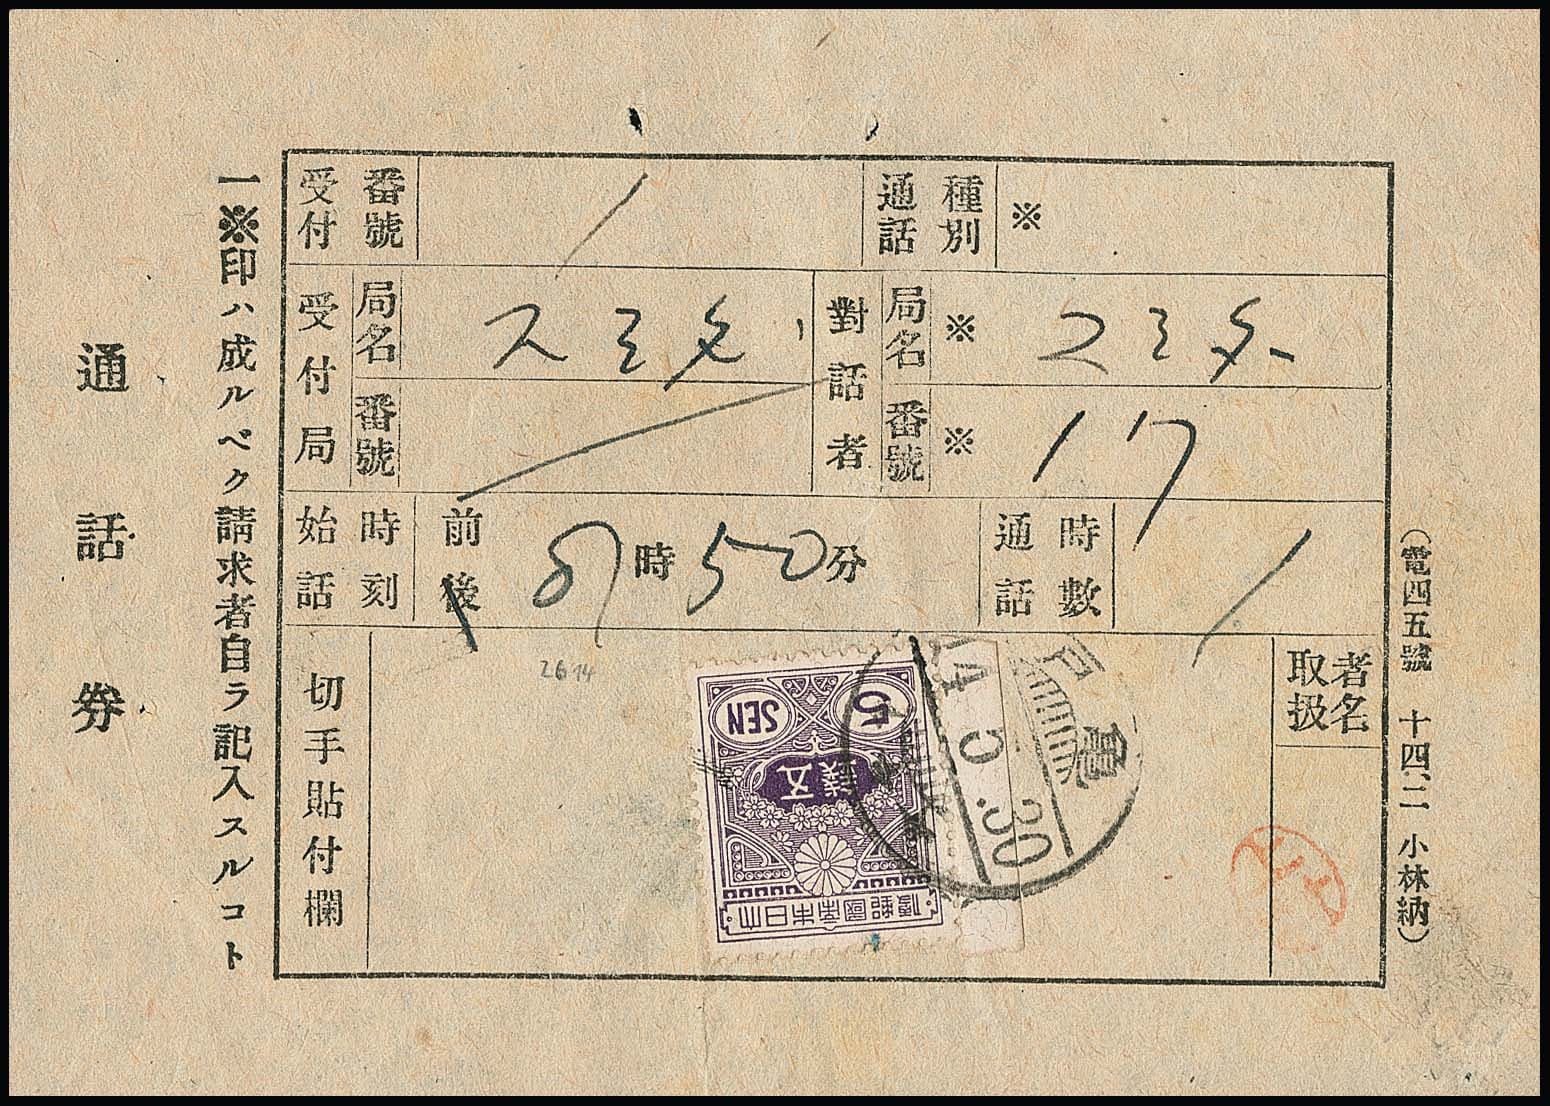 通話券
一※印ハ成ルベク請求者自ラ記入スルコト
受付番號
通話種別 ※
受付局
局名
番號
對話者
局名 ※
番號 ※ 17
始話時刻 前後 時 50 分
通話時數 1
切手貼付欄
取扱者名
2614
5 SEN
五錢
大日本帝國郵便
14.5.30
(電四五號 十四、二 小林納)